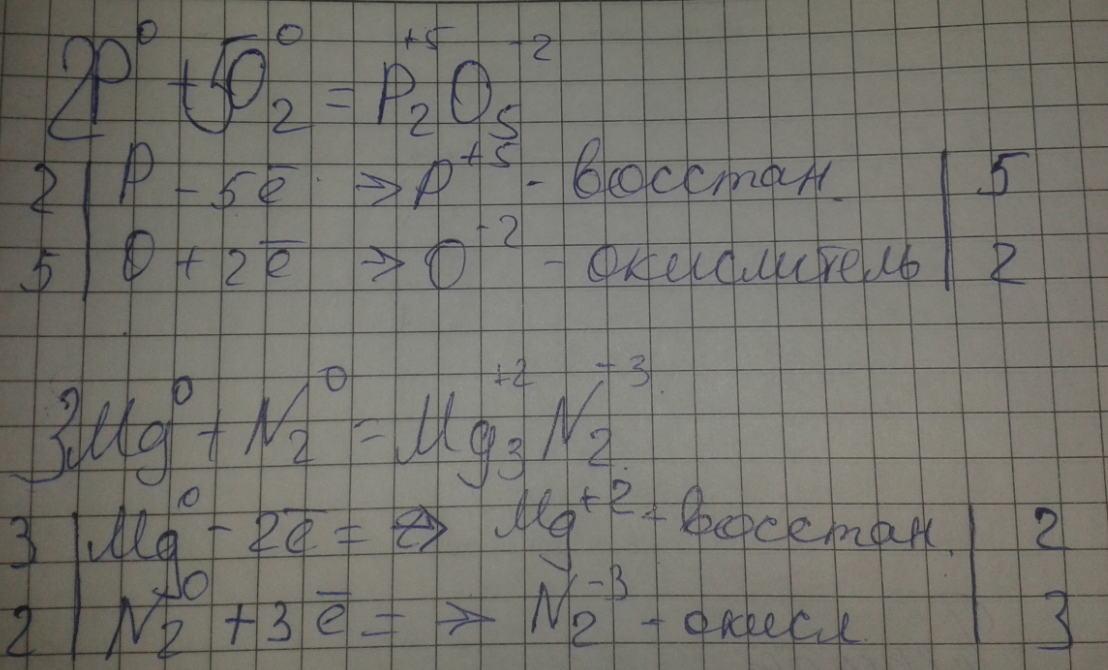 2P⁰ + 5O₂⁰ = P₂⁺⁵O₅⁻²
2 | P - 5ē ⇒ P⁺⁵ - восстан. | 5
5 | O + 2ē ⇒ O⁻² - окислитель | 2
3Mg⁰ + N₂⁰ = Mg₃⁺²N₂⁻³
3 | Mg⁰ - 2ē = ⇒ Mg⁺² - восстан. | 2
2 | N₂⁰ + 3ē = ⇒ N₂⁻³ - окисл. | 3